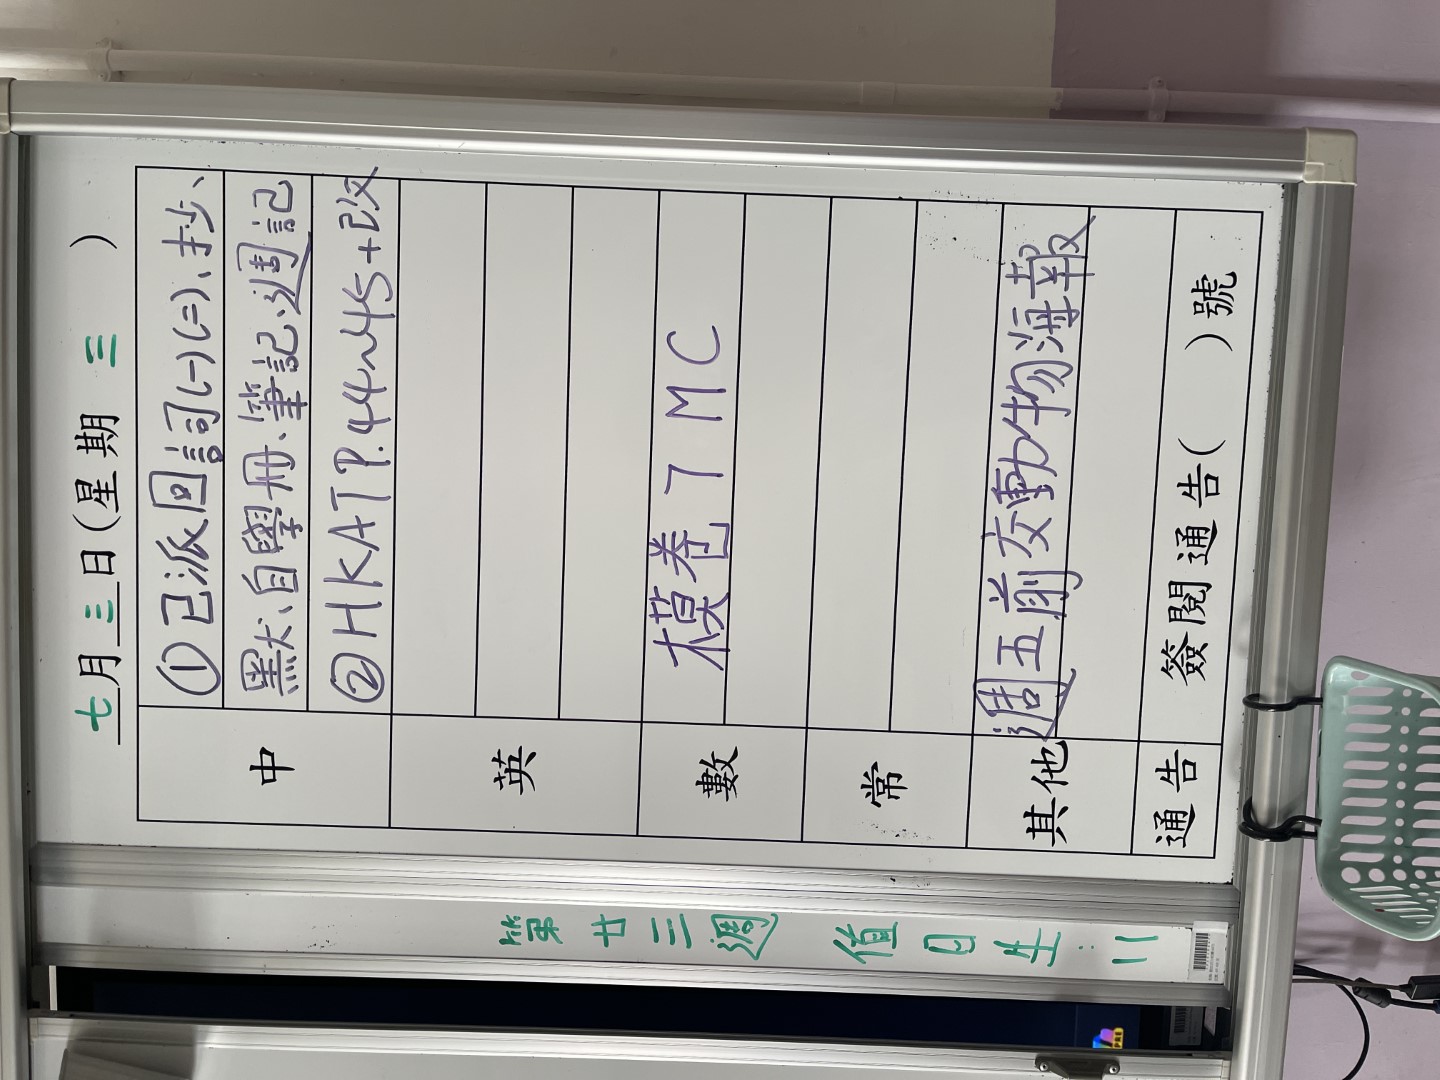 七月三日(星期 三 )
中
①已派回詞(一)(二)、抄、
默、自學冊、筆記、週記
②HKAT P.44~45+改
英
數
模卷7 MC
常
其他
週五前交動物海報
通告
簽閱通告( )號
第廿三週 值日生:11